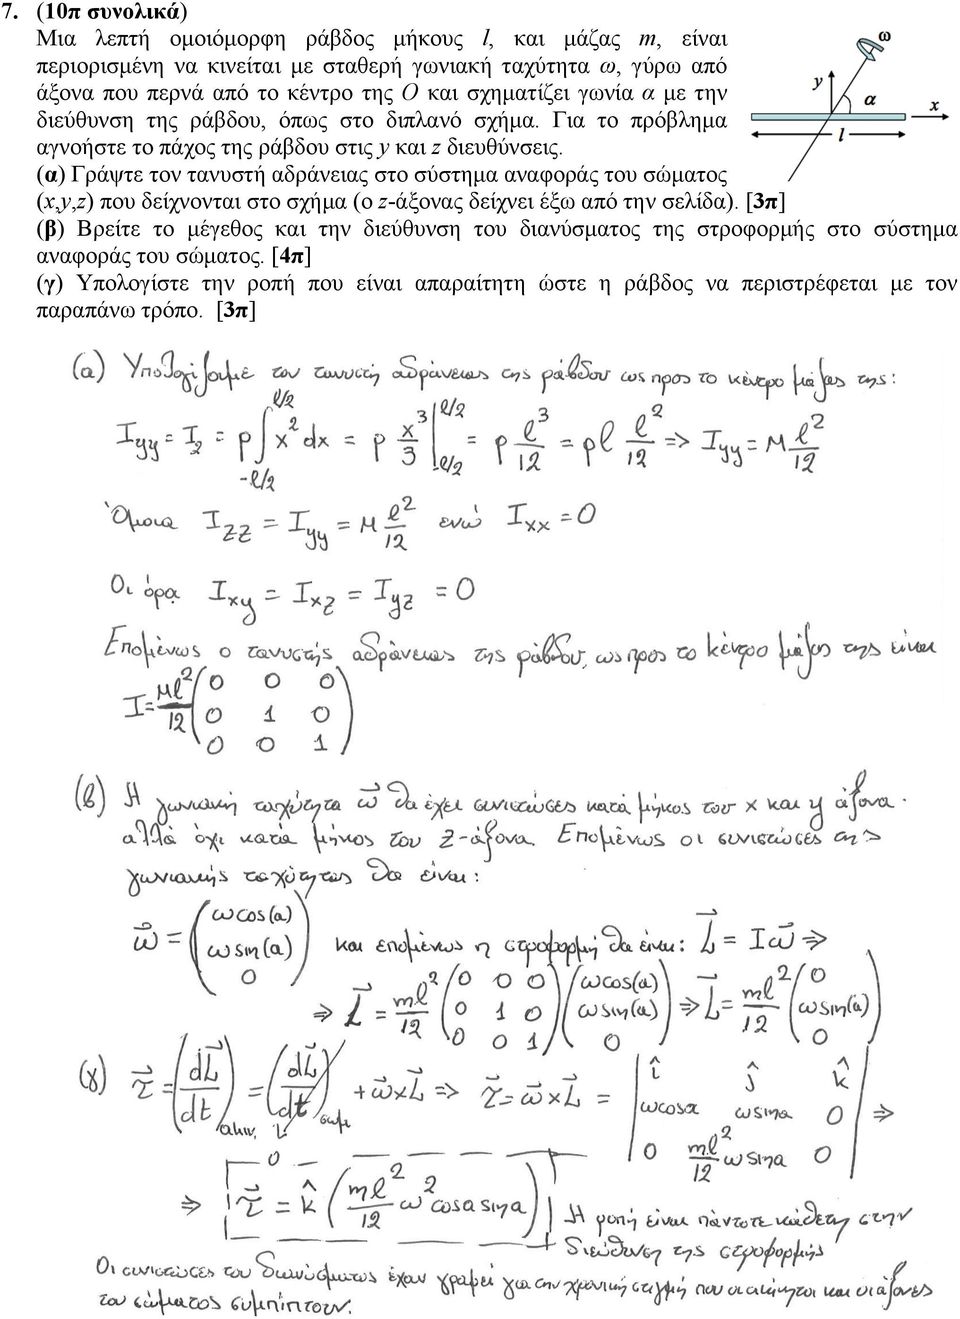 7. (10π συνολικά)
Μια λεπτή ομοιόμορφη ράβδος μήκους l, και μάζας m, είναι
περιορισμένη να κινείται με σταθερή γωνιακή ταχύτητα ω, γύρω από
άξονα που περνά από το κέντρο της Ο και σχηματίζει γωνία α με την
διεύθυνση της ράβδου, όπως στο διπλανό σχήμα. Για το πρόβλημα
αγνοήστε το πάχος της ράβδου στις y και z διευθύνσεις.
ω
y
α
x
l
(α) Γράψτε τον τανυστή αδράνειας στο σύστημα αναφοράς του σώματος
(x,y,z) που δείχνονται στο σχήμα (ο z-άξονας δείχνει έξω από την σελίδα). [3π]
(β) Βρείτε το μέγεθος και την διεύθυνση του διανύσματος της στροφορμής στο σύστημα
αναφοράς του σώματος. [4π]
(γ) Υπολογίστε την ροπή που είναι απαραίτητη ώστε η ράβδος να περιστρέφεται με τον
παραπάνω τρόπο. [3π]
(α) Υπολογίζουμε τον τανυστή αδράνειας της ράβδου ως προς το κέντρο μάζας της:
I_yy = I_2 = ρ∫_{-l/2}^{l/2} x² dx = ρ x³/3 |_{-l/2}^{l/2} = ρ l³/12 = ρl l²/12 => I_yy = M l²/12
Όμοια I_zz = I_yy = M l²/12 ενώ I_xx = 0
Οι όροι I_xy = I_xz = I_yz = 0
Επομένως ο τανυστής αδράνειας της ράβδου, ως προς το κέντρο μάζας της είναι
I = Ml²/12 (0 0 0
0 1 0
0 0 1)
(β) Η γωνιακή ταχύτητα ω⃗ θα έχει συνιστώσες κατά μήκος του x και y άξονα
αλλά όχι κατά μήκος του z-άξονα. Επομένως οι συνιστώσες της
γωνιακής ταχύτητας θα είναι:
ω⃗ = (ωcos(a) ωsin(a) 0) και επομένως η στροφορμή θα είναι: L⃗ = Iω⃗ ⇒
⇒ L⃗ = ml²/12 (0 0 0 0 1 0 0 0 1) (ωcos(a) ωsin(a) 0) ⇒ L⃗ = ml²/12 (0 ωsin(a) 0)
(γ) τ⃗ = (dL⃗/dt)_αδρν. = (dL⃗/dt)_σωμ + ω⃗×L⃗ => τ⃗ = ω⃗×L⃗ = | î ĵ k̂ ωcosa ωsina 0 0 ml²/12 ωsina 0 | ⇒
0
⇒ τ⃗ = k̂ (ml²/12 ω² cosa sina) Η ροπή είναι πάντοτε κάθετη στην
διεύθυνση της στροφορμής
Οι συνιστώσες του διανύσματος έχουν γραφεί για την χρονική στιγμή που οι ακίνητοι και οι άξονες
του σώματος συμπίπτουν.